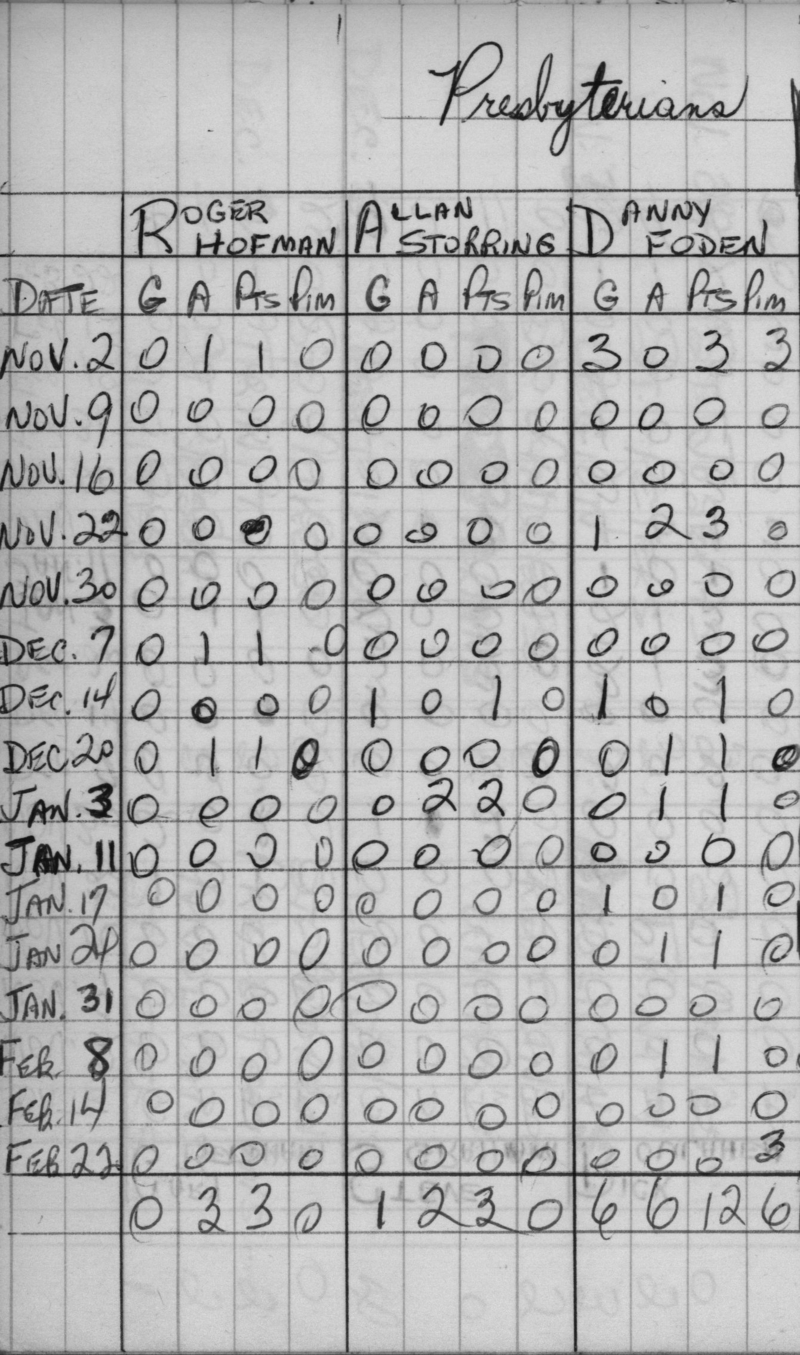 Presbyterians
ROGER HOFMAN ALLAN STORRING DANNY FODEN
DATE G A Pts Pim G A Pts Pim G A Pts Pim
NOV. 2 0 1 1 0 0 0 0 0 3 0 3 3
NOV. 9 0 0 0 0 0 0 0 0 0 0 0 0
NOV. 16 0 0 0 0 0 0 0 0 0 0 0 0
NOV. 22 0 0 0 0 0 0 0 0 1 2 3 0
NOV. 30 0 0 0 0 0 0 0 0 0 0 0 0
DEC. 7 0 1 1 0 0 0 0 0 0 0 0 0
DEC. 14 0 0 0 0 1 0 1 0 1 0 1 0
DEC 20 0 1 1 0 0 0 0 0 0 1 1 0
JAN. 3 0 0 0 0 0 2 2 0 0 1 1 0
JAN. 11 0 0 0 0 0 0 0 0 0 0 0 0
JAN. 17 0 0 0 0 0 0 0 0 1 0 1 0
JAN 24 0 0 0 0 0 0 0 0 0 1 1 0
JAN. 31 0 0 0 0 0 0 0 0 0 0 0 0
FEB. 8 0 0 0 0 0 0 0 0 0 1 1 0
FEB. 14 0 0 0 0 0 0 0 0 0 0 0 0
FEB 22 0 0 0 0 0 0 0 0 0 0 0 3
0 3 3 0 1 2 3 0 6 6 12 6